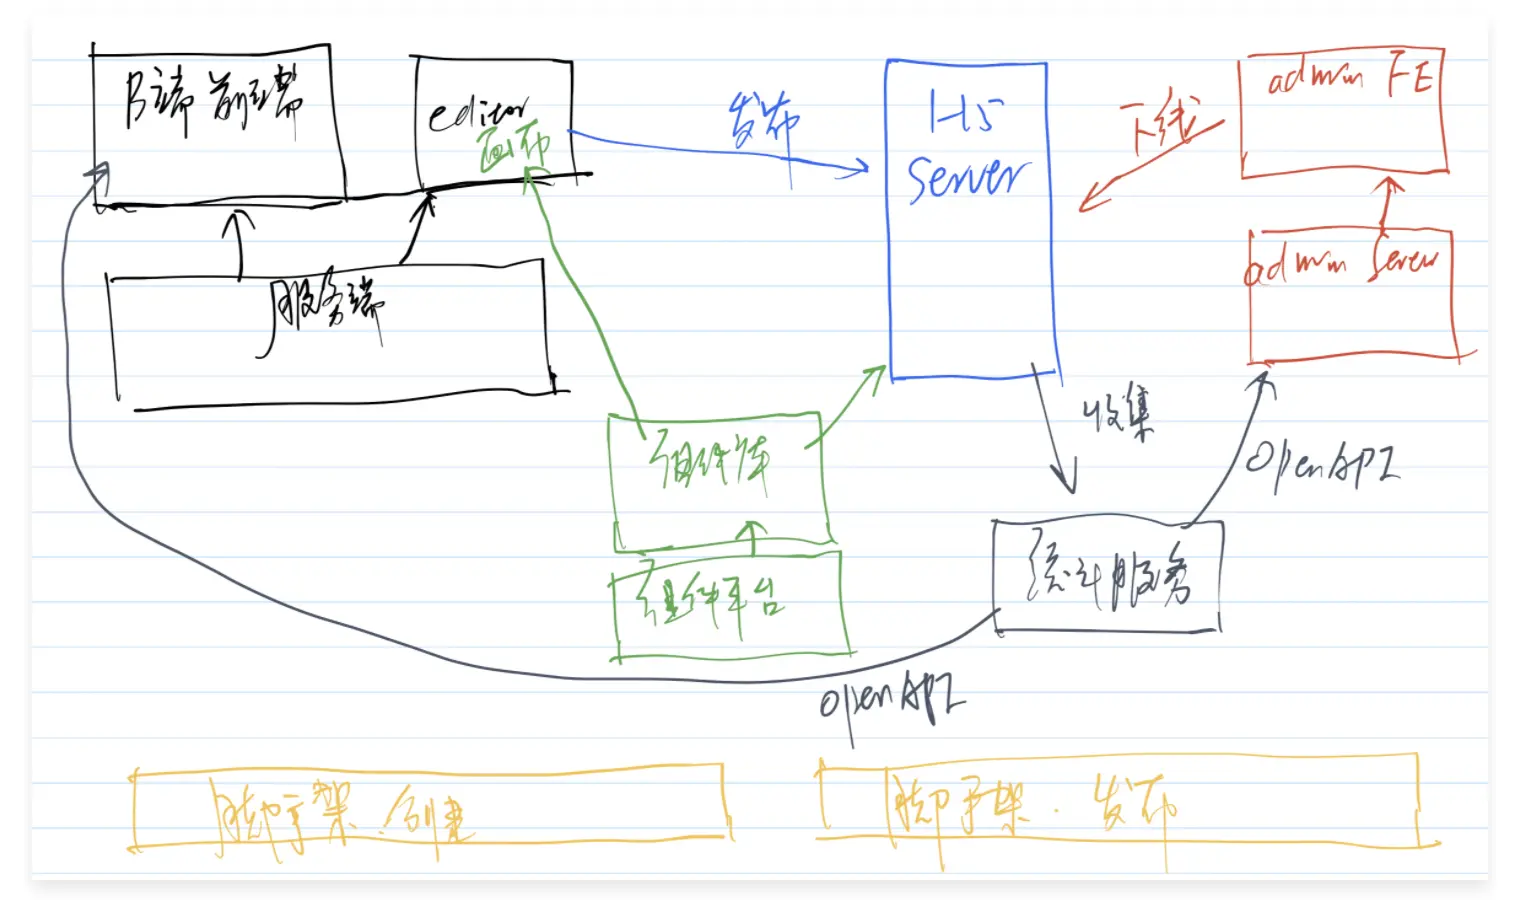 B端 前端
editor
画布
发布
H5
Server
下线
admin FE
admin Server
服务端
收集
组件库
OpenAPI
统计服务
组件平台
OpenAPI
脚手架.创建
脚手架.发布